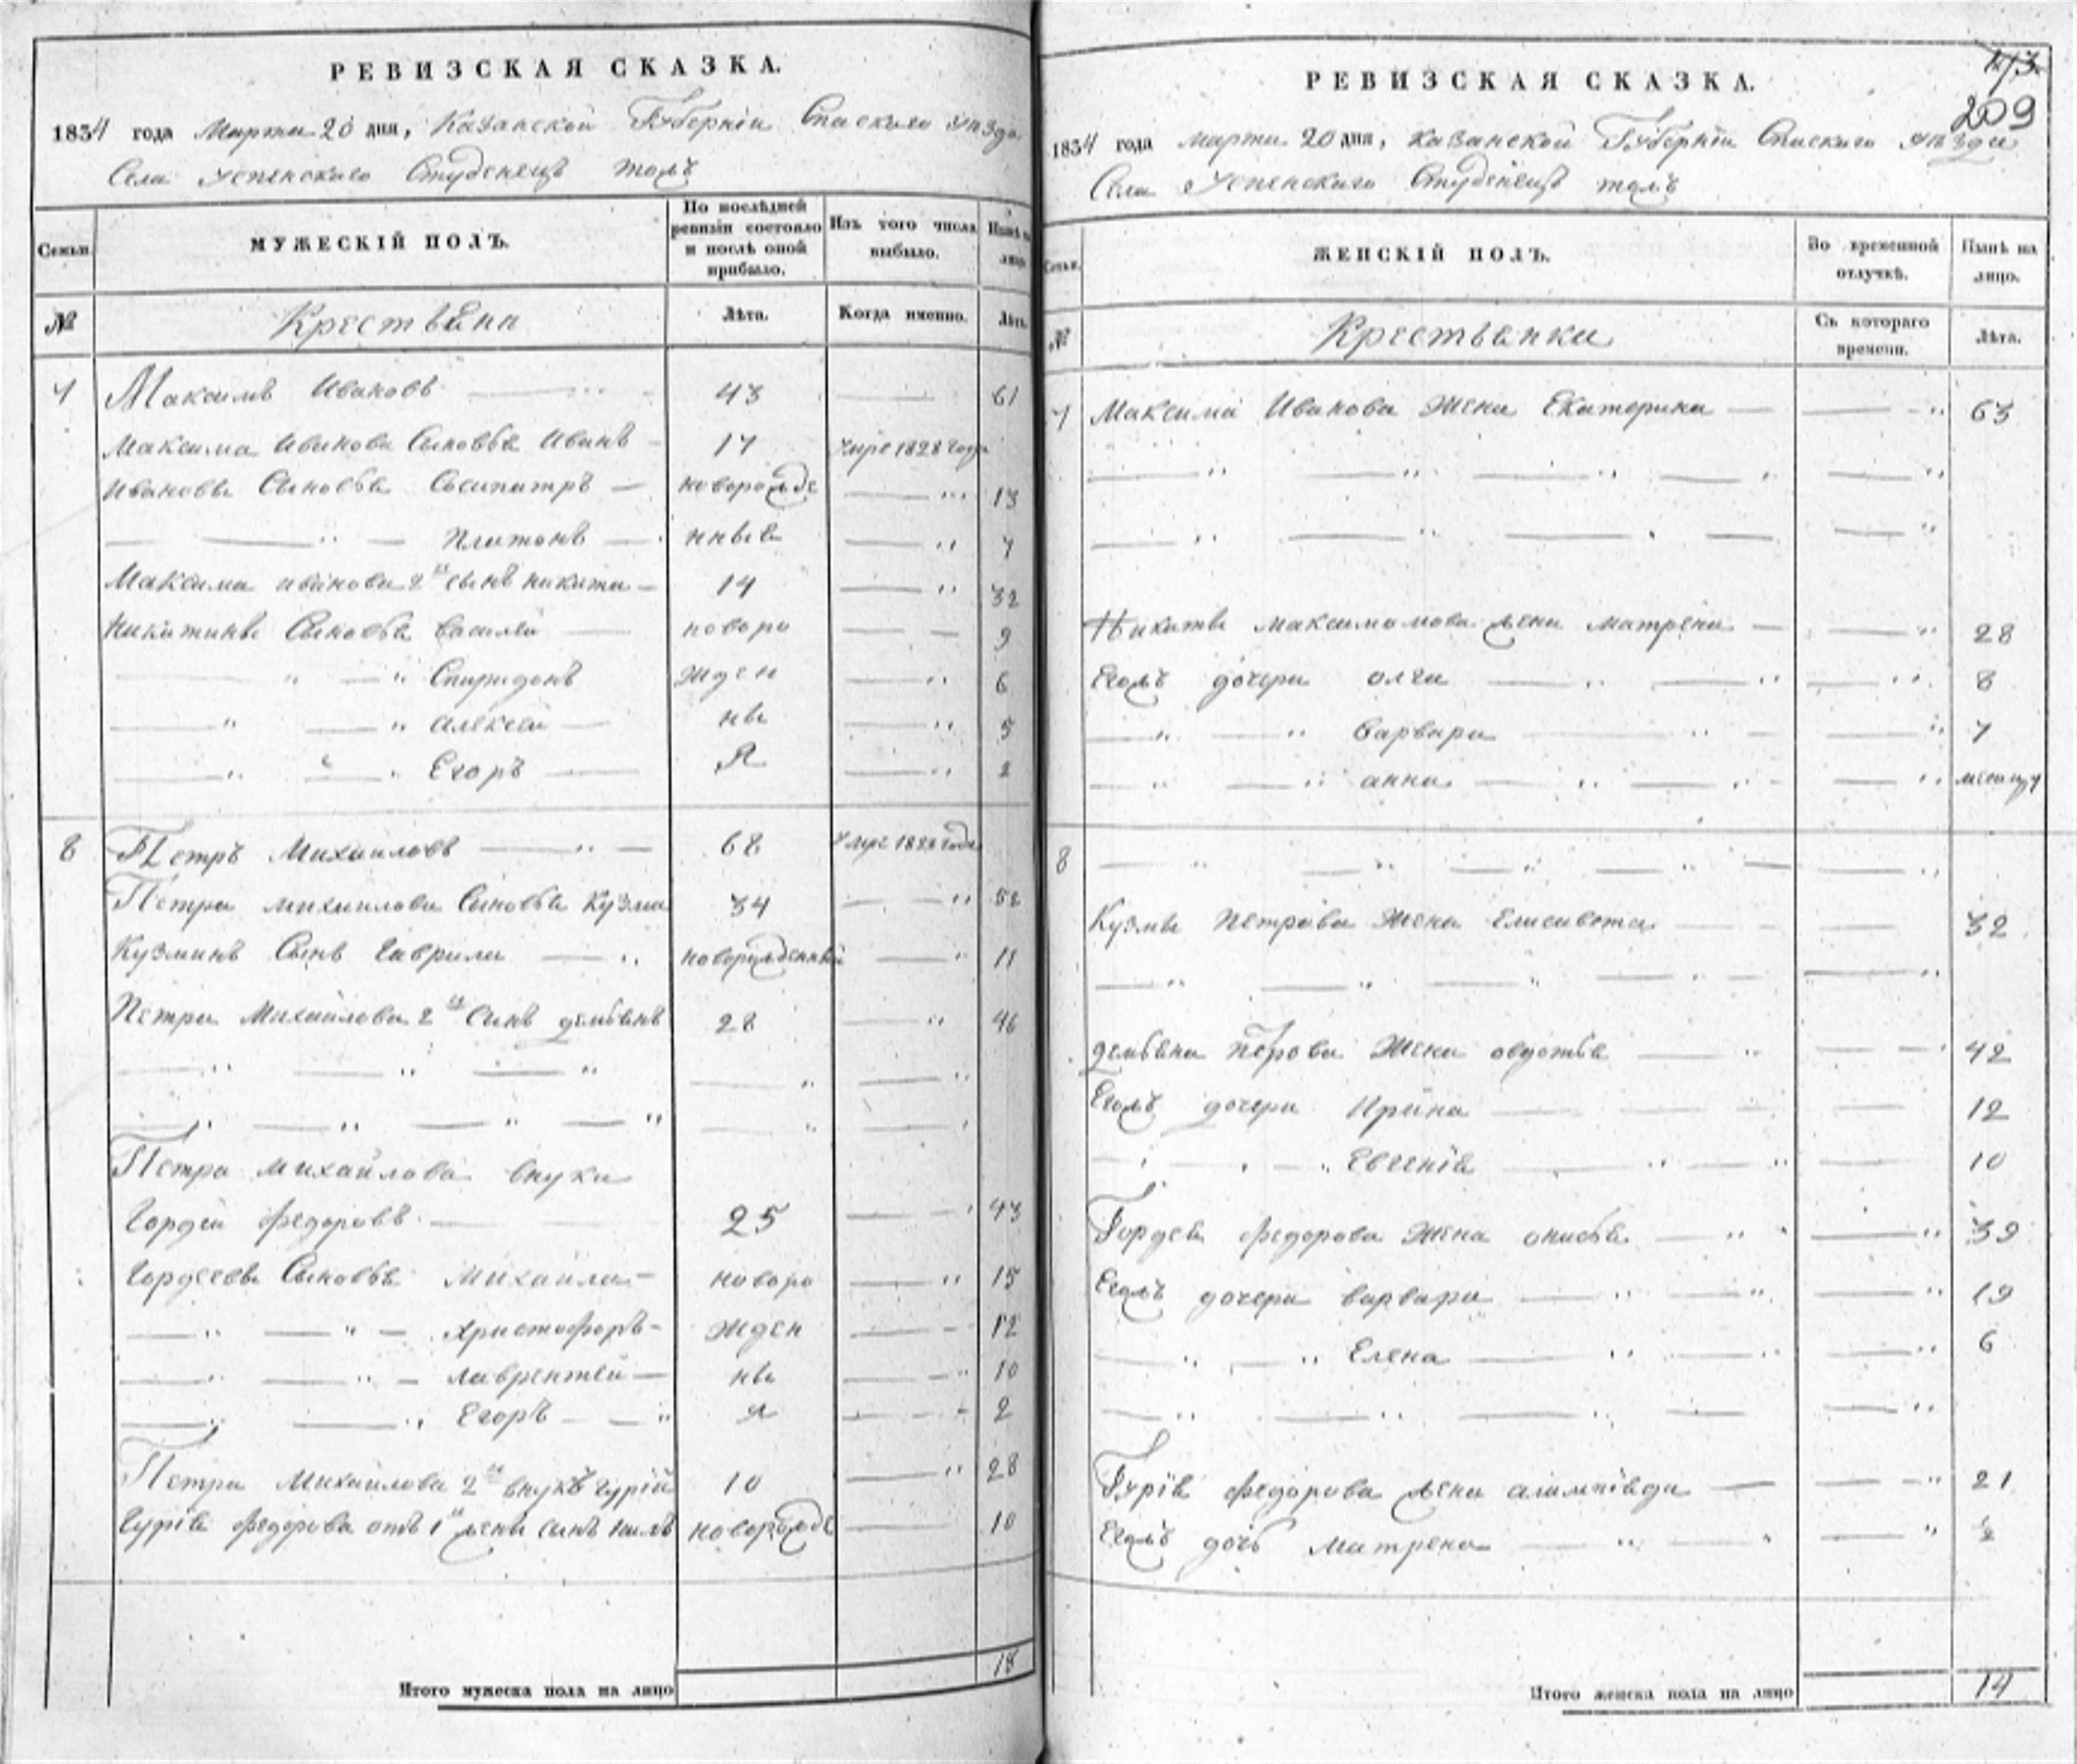 РЕВИЗСКАЯ СКАЗКА.
1834 года Марта 20 дня, Казанской Губерніи Спаскаго уезда
Села Успенскаго Студенецъ тожъ
Семьи.
МУЖЕСКІЙ ПОЛЪ.
По послѣдней ревизіи состояло и послѣ оной прибыло.
Изъ того числа выбыло.
Нынѣ на лицо
№
Крестьяне
Лѣта.
Когда именно.
Лѣта
7 Максимъ Ивановъ 43 61
Максима Иванова Сыновья Иванъ 17 Умре 1828 года
Ивановы Сыновья Сосипатръ новорожде 13
Платонъ нные 7
Максима иванова 2й сынъ никита 14 32
Никитины Сыновья Василей новоро 9
Спиридонъ жден 6
алексей ны 5
Егоръ Я 2
8 Петръ Михаиловъ 68 Умре 1828 года
Петра михаилова Сыновья Кузма 34 52
Кузминъ Сынъ Гаврила новорожденный 11
Петра Михаилова 2й Сынъ демьянъ 28 46
Петра михайлова внуки
Гордей федоровъ 25 43
Гордеевы Сыновья Михайла новоро 15
Христофоръ жден 12
лаврентей ны 10
Егоръ я 2
Петра Михайлова 2й внукъ гурій 10 28
Гурія федорова отъ 1й жены сынъ нилъ новорожде 10
Итого мужеска пола на лицо 18
173
209
РЕВИЗСКАЯ СКАЗКА.
1834 года марта 20 дня, казанской Губерніи Спаскаго уезда
Села Успенскаго Студенецъ тожъ
Семьи.
ЖЕНСКІЙ ПОЛЪ.
Во временной отлучкѣ.
Нынѣ на лицо.
№
Крестьянки
Съ котораго времени.
Лѣта.
7 Максима Иванова жена Екатерина 63
Никиты максимомова жена матрена 28
Егожъ дочери олга 8
Варвара 7
анна
8
Кузмы Петрова жена Елисавета 32
демьяна Перова жена овдотья 42
Егожъ дочери Ирина 12
Евгения 10
Гордея федорова жена онисья 39
Егожъ дочери варвара 19
Елена 6
Гурія федорова жена алимпіяда 21
Егожъ дочь матрена ½
Итого женска пола на лицо 14